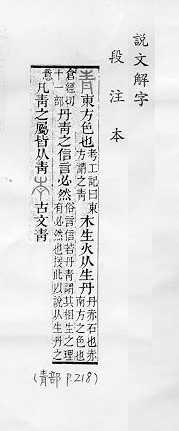 說文解字
段注本
青東方色也考工記曰東方謂之青木生火从生丹丹赤石也赤南方之色也
倉經切十一部丹青之信言必然俗言信若丹青謂其相生之理有必然也援此以說从生丹之
意凡青之屬皆从青古文青
(青部 p.218)